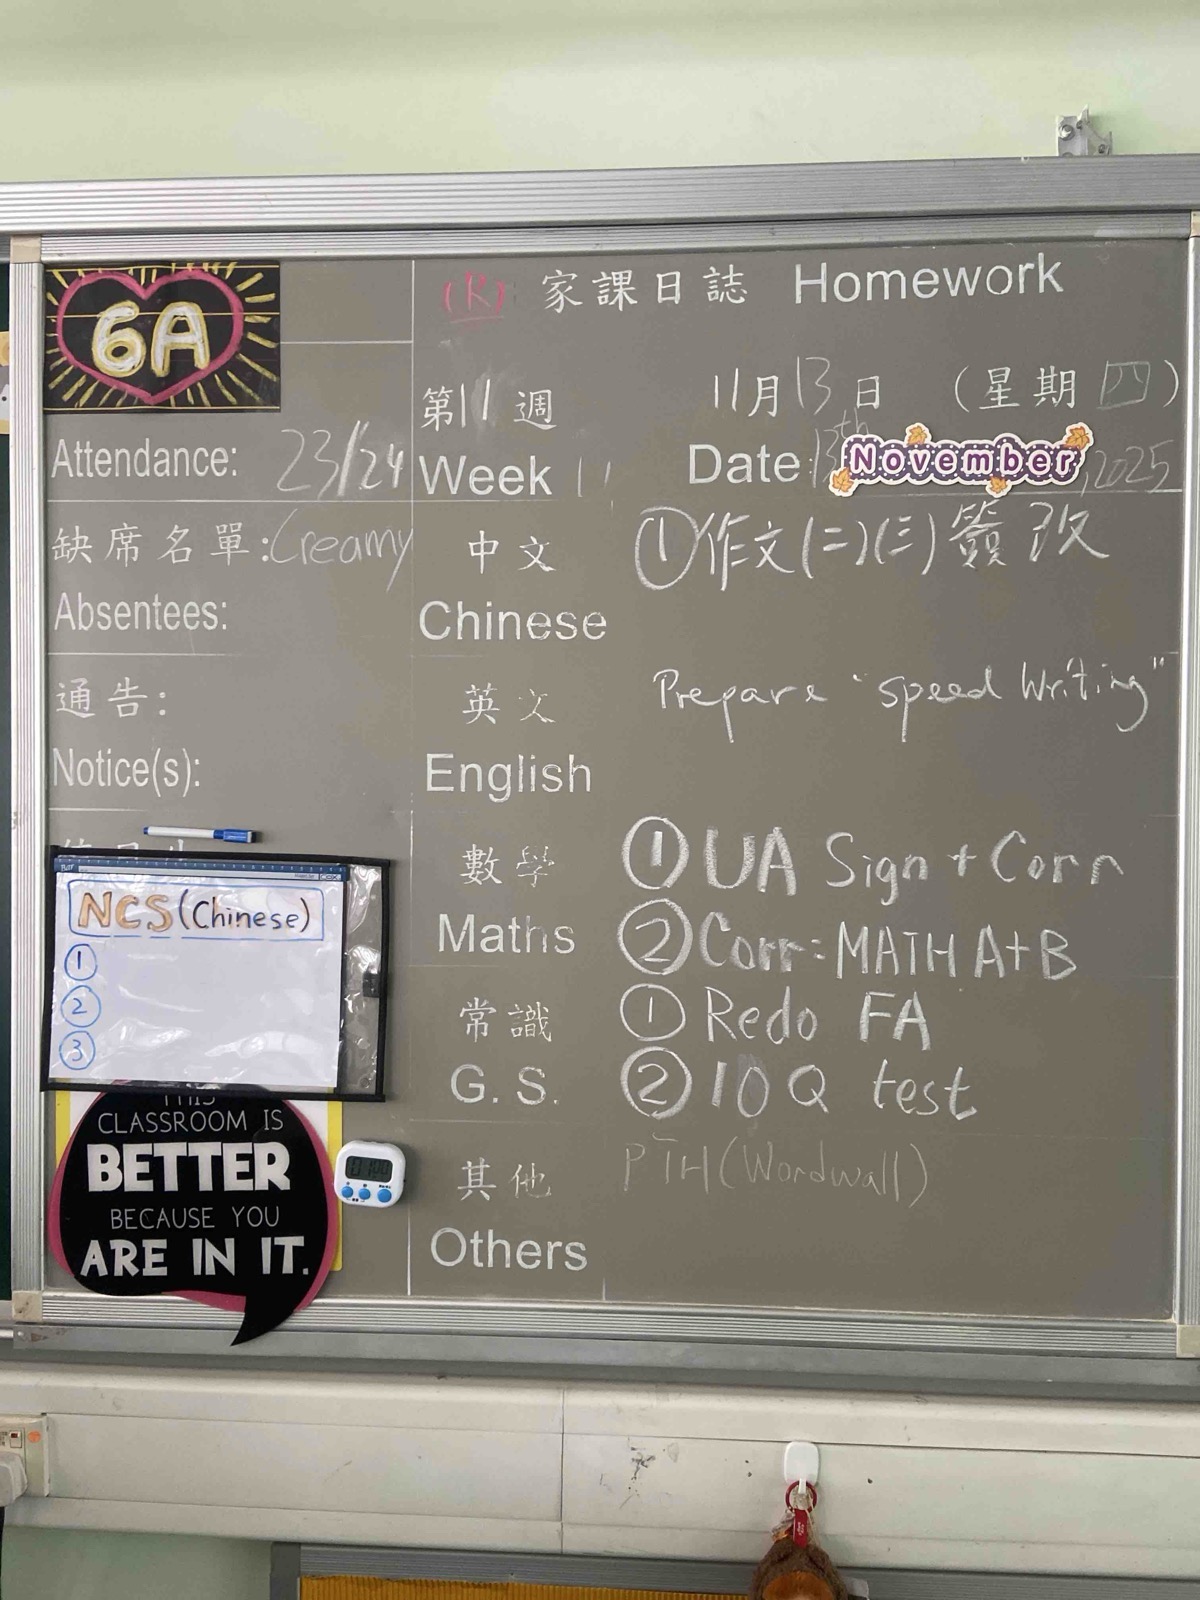 6A
(R) 家課日誌 Homework
第11週 11月13日 (星期四)
Week 11 Date: 13th November, 2025
Attendance: 23/24
缺席名單: Creamy
Absentees:
通告:
Notice(s):
NCS (Chinese)
①
②
③
THIS
CLASSROOM IS
BETTER
BECAUSE YOU
ARE IN IT.
中文 ①作文(二)(三)簽改
Chinese
英文 Prepare "speed Writing"
English
數學 ① UA Sign + Corr
Maths ② Corr: MATH A+B
常識 ① Redo FA
G. S. ② 10 Q test
其他 PTH (Wordwall)
Others